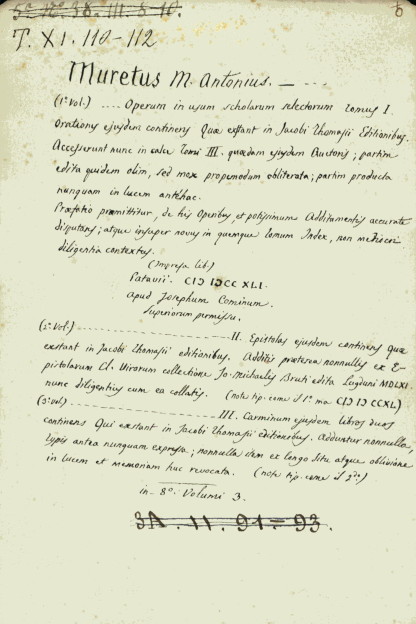 5ª 10ª 38. III. 8-10.
6
T. XI. 110-112
Muretus M. Antonius. — ---
(1º Vol.) .... Operum in usum scholarum selectorum Tomus I.
Orationes ejusdem continens Quæ extant in Jacobi Thomasii Editionibus.
Accesserunt nunc in calce Tomi III. quædam ejusdem Auctoris; partim
edita quidem olim, sed mox propemodum obliterata; partim producta
nunquam in lucem antehac.
Præfatio præmittitur, de his Operibus et potissimum Additamentis accurate
disputans; atque insuper novus in quemque tomum Index, non mediocri
diligentia contextus.
(Impresa lib.)
Patavii. CIↃ IↃCC XLI.
apud Josephum Cominum.
Superiorum permissu.
(2º Vol.) ---------- II. Epistolas ejusdem continens quæ
extant in Jacobi Thomasii editionibus. Additis præterea nonnullis ex E-
pistolarum Cl. Virorum collectione Jo. Michaelis Bruti edita Lugduni MDLXI.
nunc diligentius cum ea collatis. (note tip. come il 1º ma CIↃ IↃCCXL)
(3º Vol.) ---------- III. Carminum ejusdem libros duos
continens Qui extant in Jacobi Thomasii editionibus. Adduntur nonnulla,
typis antea nunquam expressa; nonnulla item ex longo situ atque oblivione
in lucem et memoriam huc revocata. (note tip. come il 2º)
in- 8º. Volumi 3.
3A. 11. 91-93.